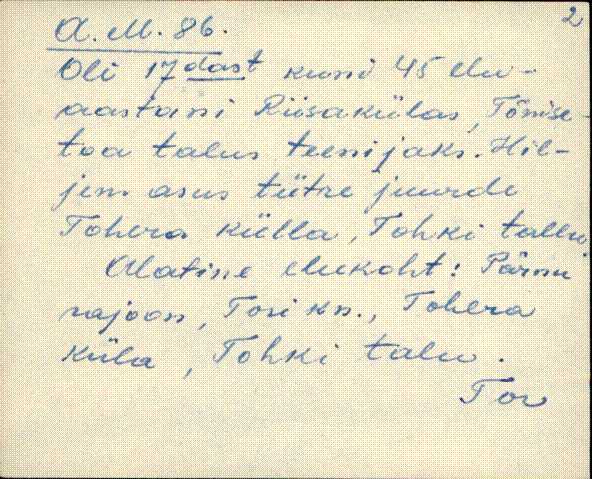 2
A. M. 86.
Oli 17dast kuni 45 elu-
aastani Riisakülas, Tõnise-
toa talus teenijaks. Hil-
jem asus tütre juurde
Tohera külla, Tohki tallu.
Alatine elukoht: Pärnu
rajoon, Tori kn., Tohera
küla, Tohki talu.
Tor